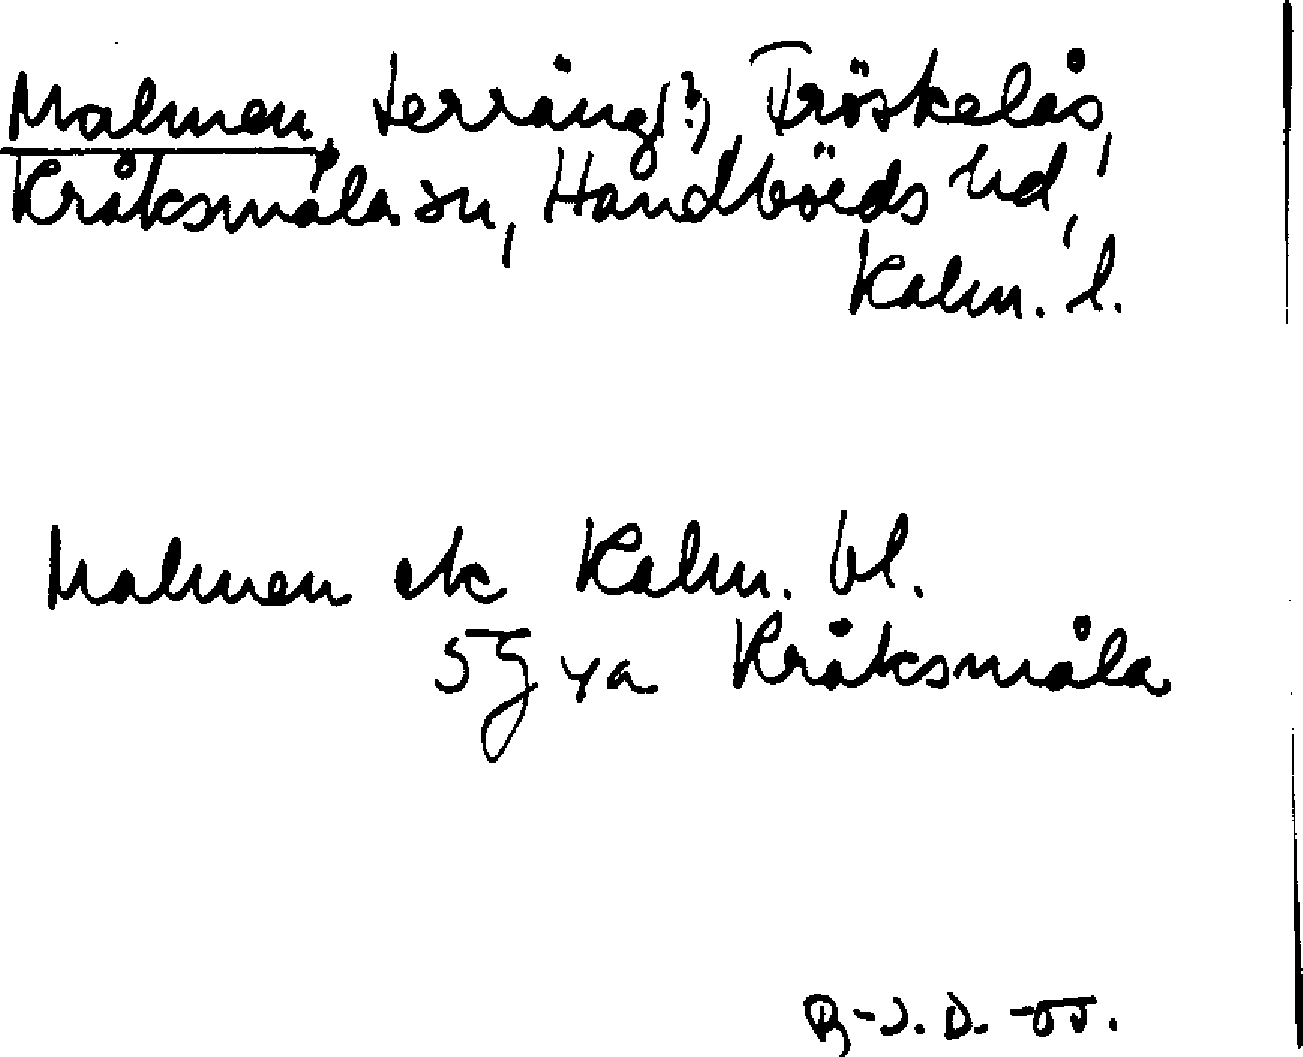 Malmen, terräng(?), Fröskelås,
Kråksmåla sn, Handbörds hd,
Kalm. l.
Malmen ek Kalm. bl.
5G ya Kråksmåla
B-J. D. -55.